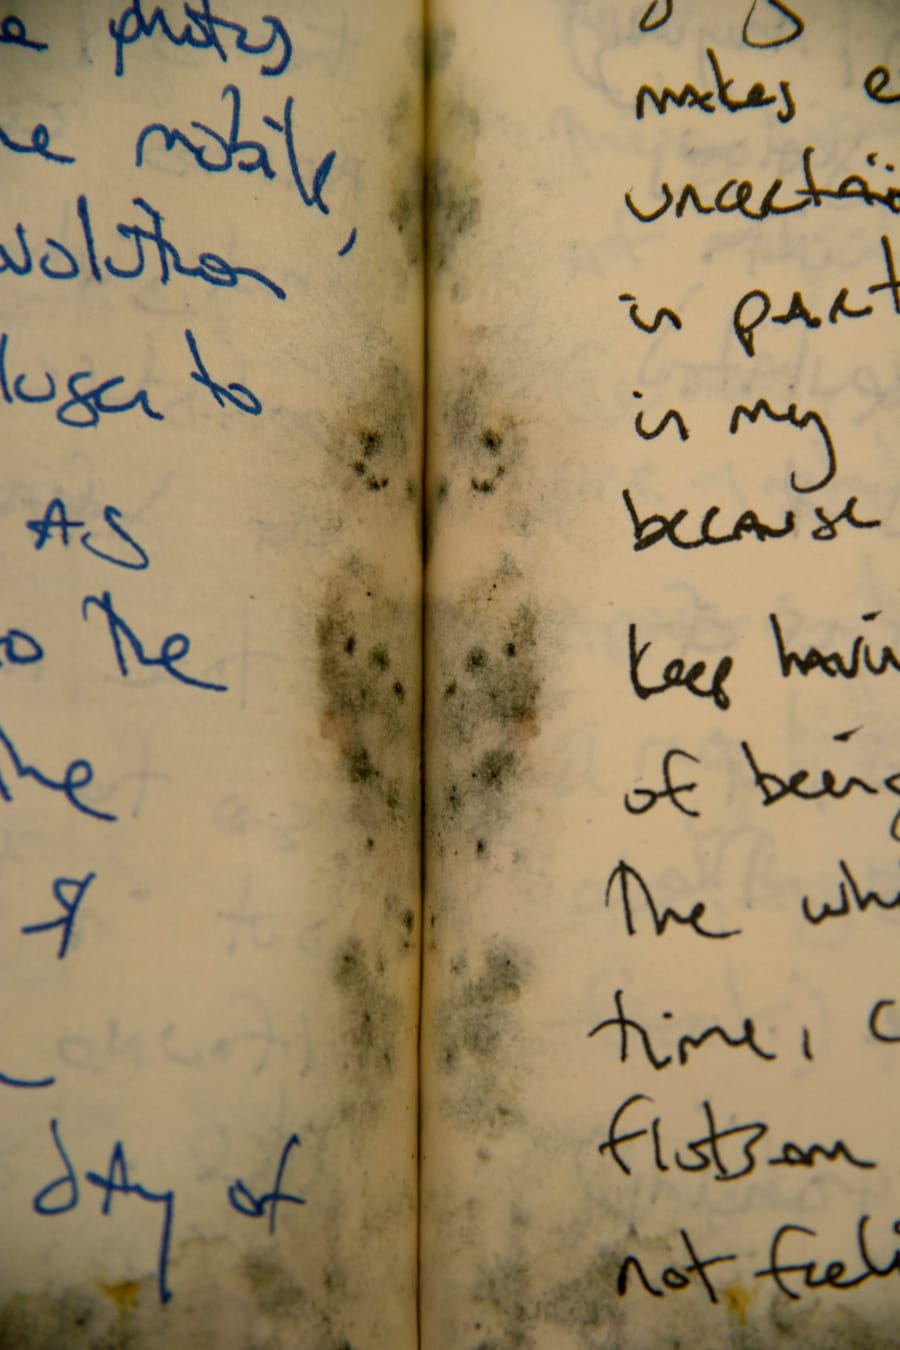 e photos
he mobile,
volution
to
As
to the
the
I
day of
makes e
uncertain
in part
in my
because
keep havin
of being
The who
time, c
flotsam
not feeli